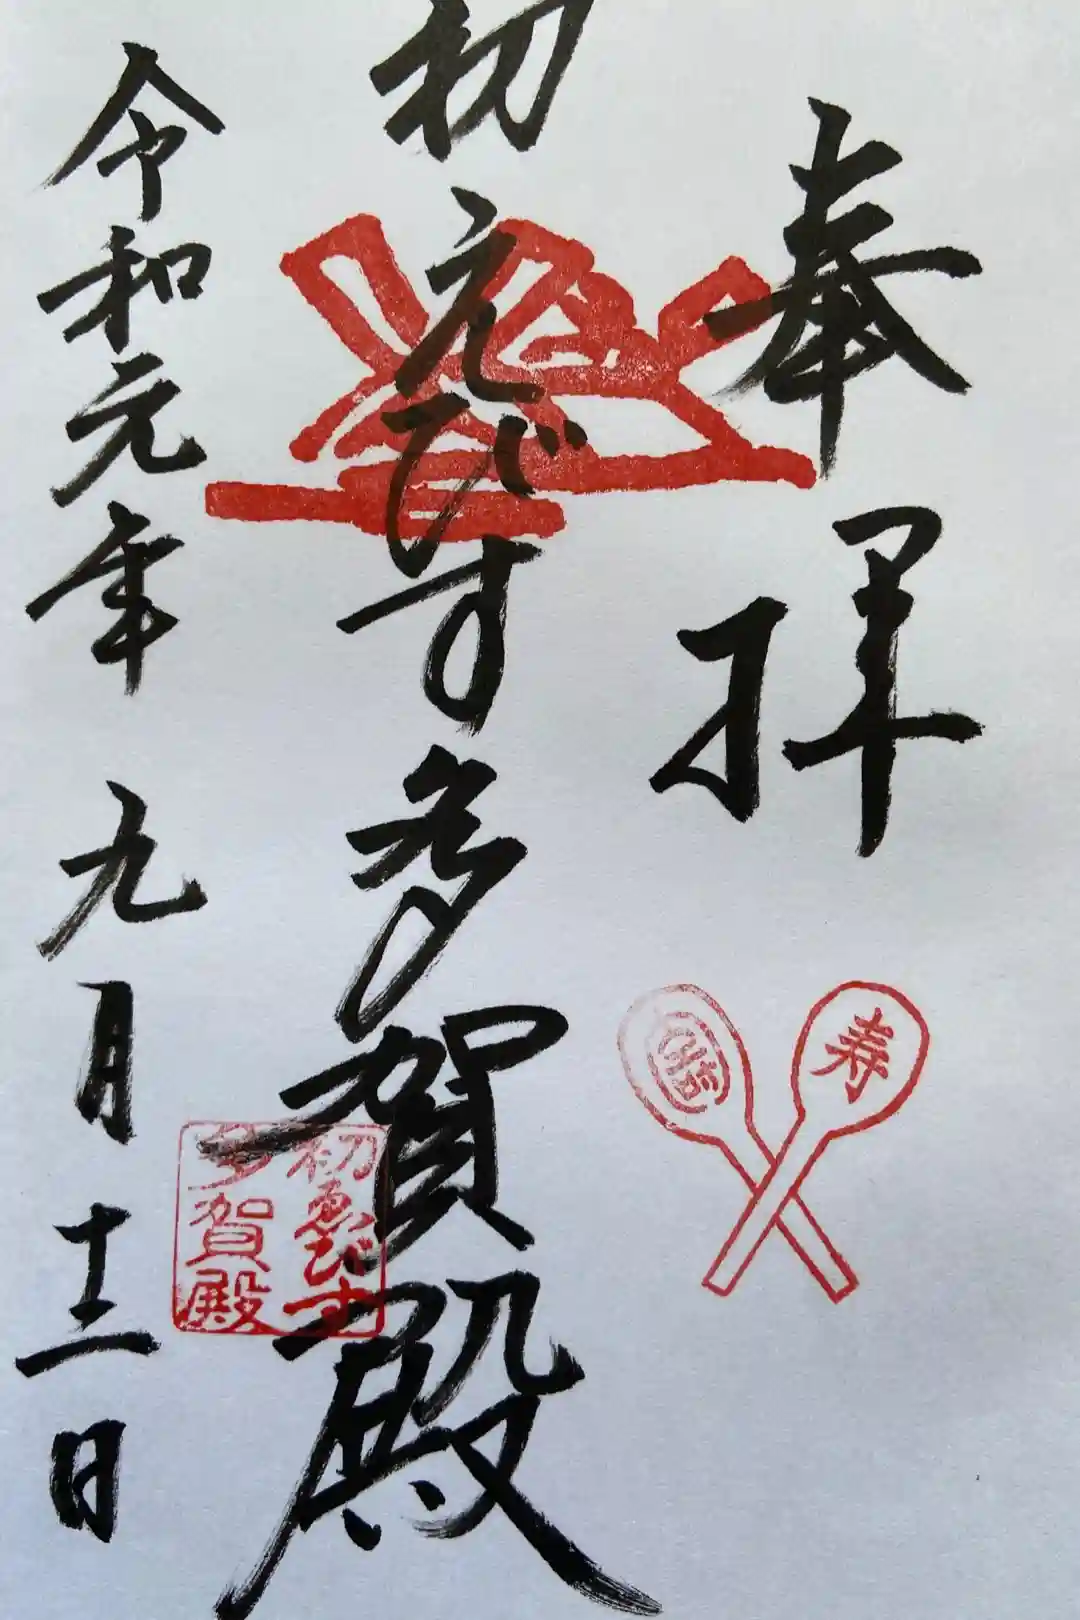 奉拝
寿
初えびす多賀殿
初ゑびす
多賀殿
令和元年九月十二日